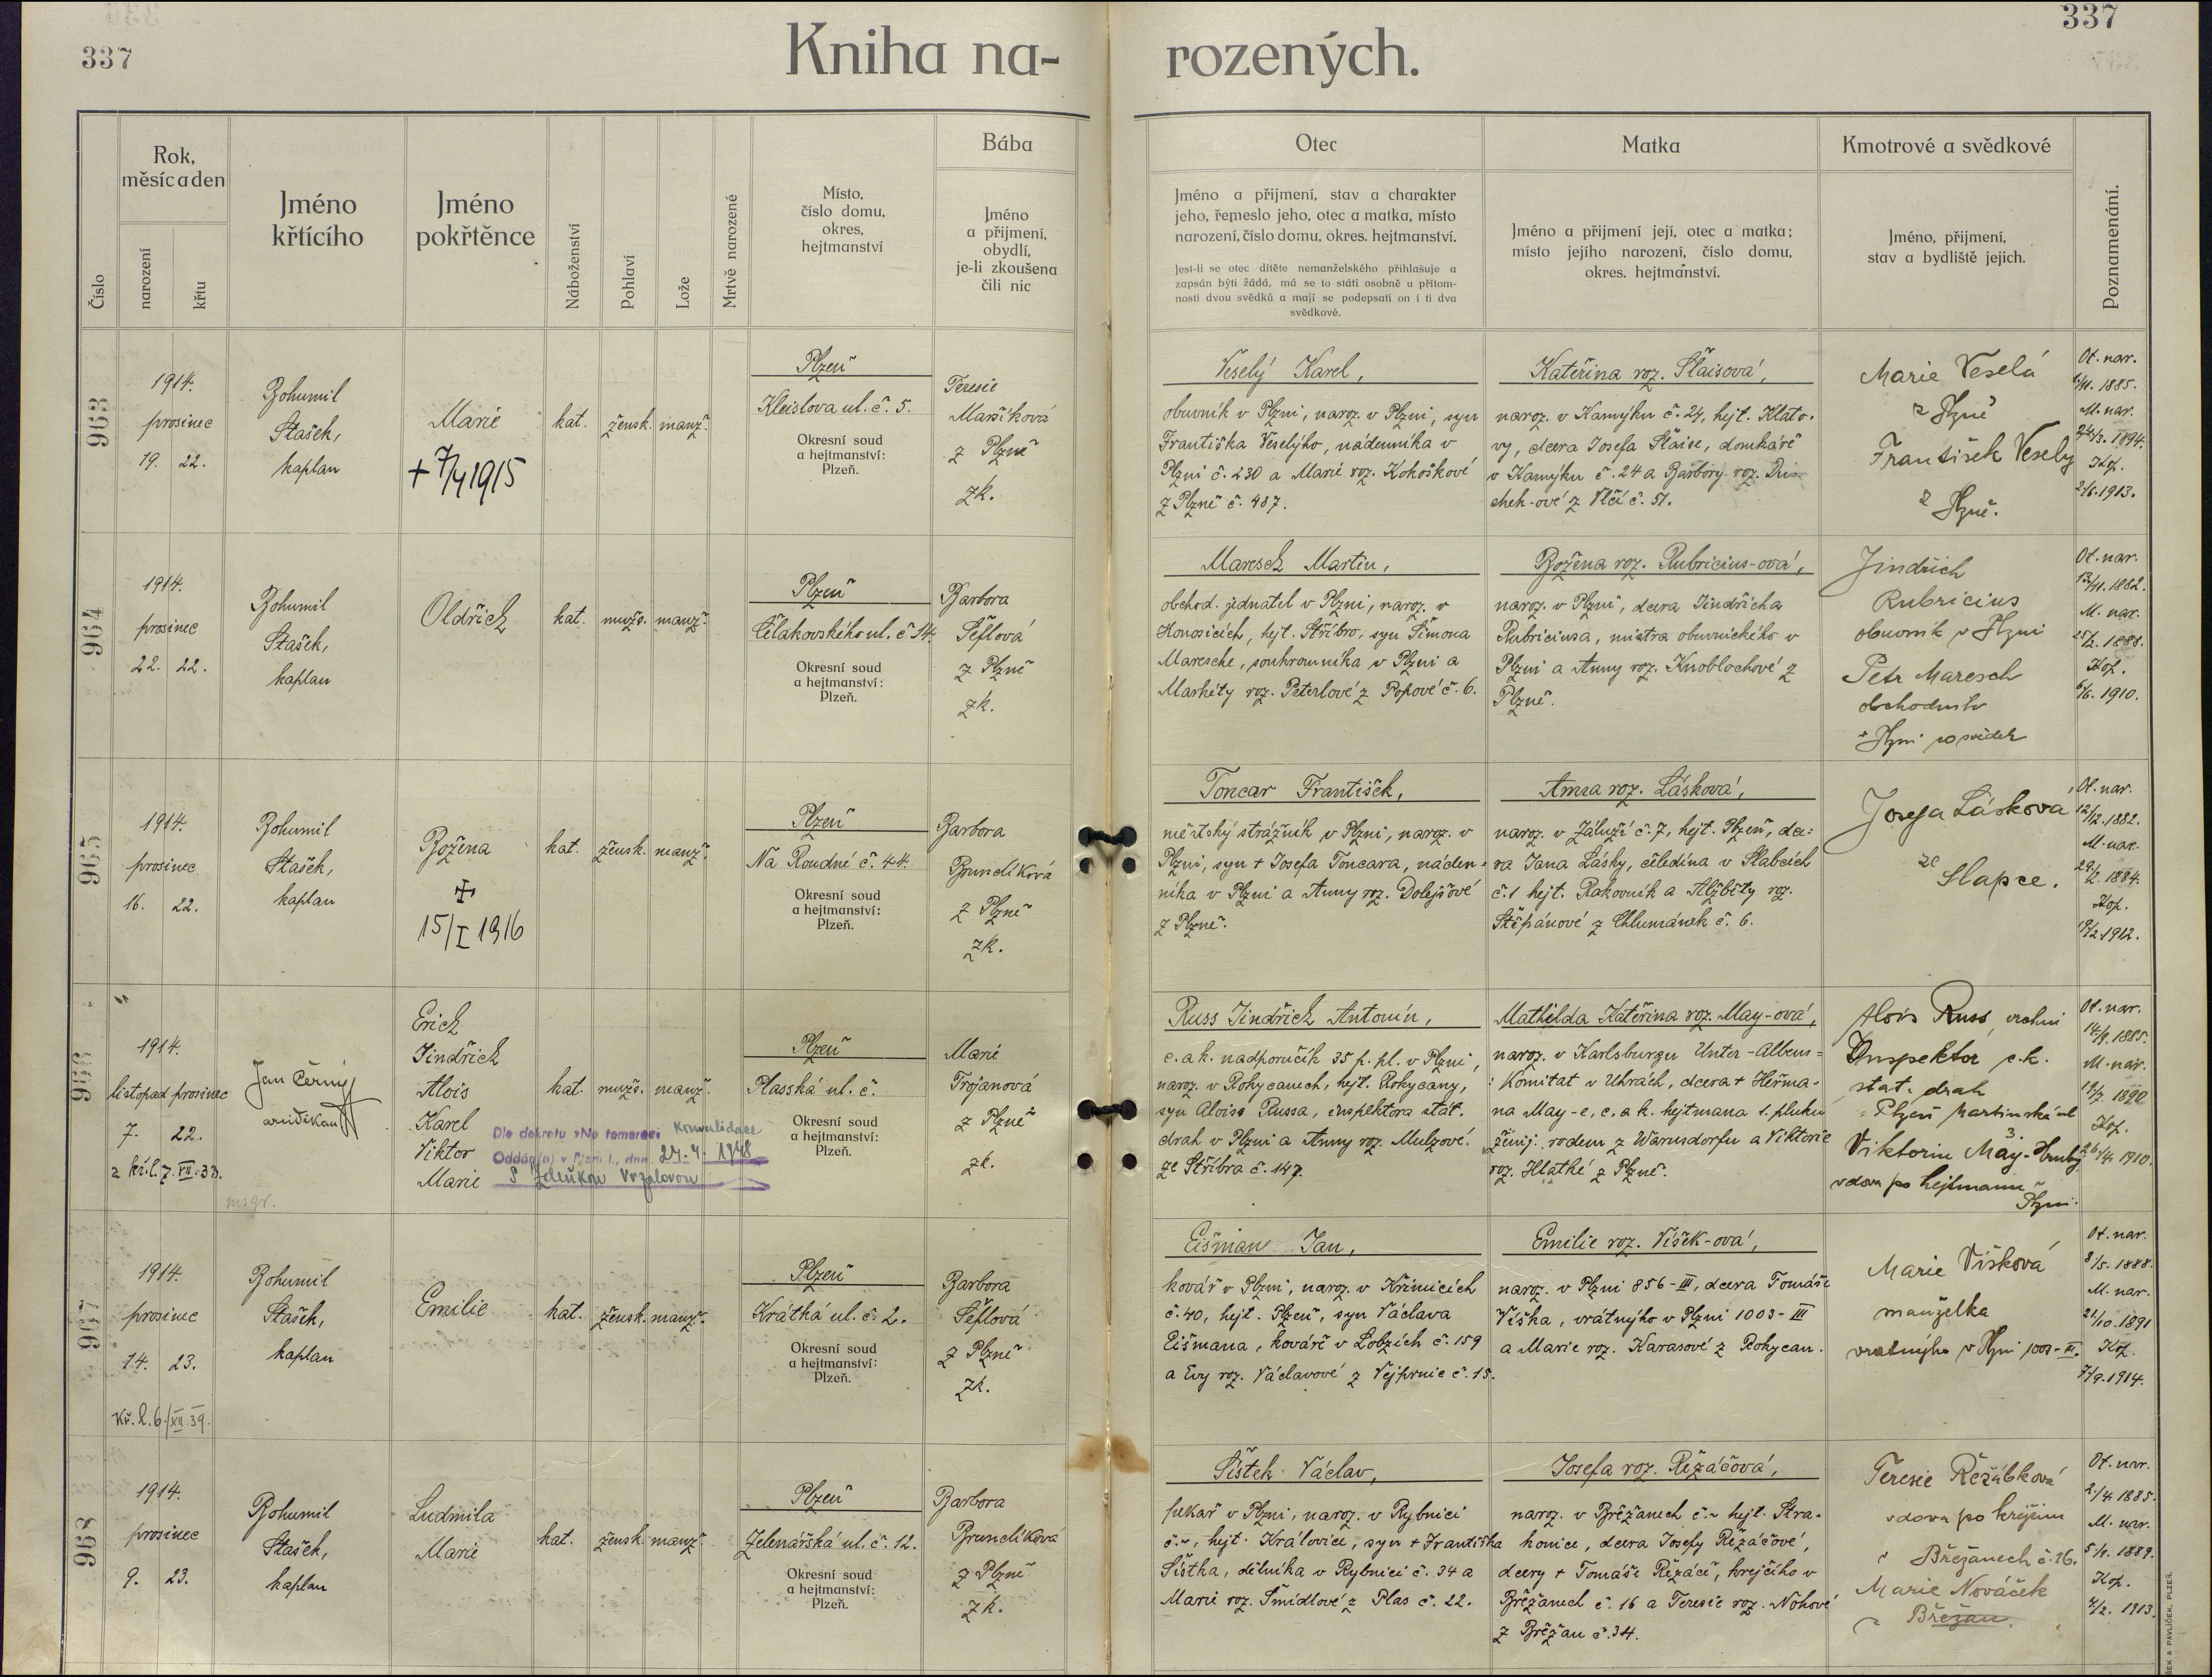 337
337
Kniha na-
rozených.
Číslo
Rok,
měsíc a den
narození
křtu
Jméno
křtícího
Jméno
pokřtěnce
Náboženství
Pohlaví
Lože
Mrtvě narozené
Místo,
číslo domu,
okres,
hejtmanství
Bába
Jméno
a přijmení,
obydlí,
je-li zkoušena
čili nic
Otec
Jméno a přijmení, stav a charakter
jeho, řemeslo jeho, otec a matka, místo
narození, číslo domu, okres. hejtmanství.
Jest-li se otec dítěte nemanželského přihlašuje a
zapsán býti žádá, má se to státi osobně u přítom-
nosti dvou svědků a mají se podepsati on i ti dva
svědkové.
Matka
Jméno a přijmení její, otec a matka;
místo jejího narození, číslo domu,
okres. hejtmanství.
Kmotrové a svědkové
Jméno, přijmení,
stav a bydliště jejich.
Poznamenání.
963
1914.
prosinec
19. 22.
Bohumil
Stašek,
kaplan
Marie
+ 7/4 1915
kat.
žensk.
manž.
Plzeň
Kleislova ul. č. 5.
Okresní soud
a hejtmanství:
Plzeň.
Teresie
Maršíková
z Plzně
zk.
Veselý Karel,
obuvník v Plzni, naroz. v Plzni, syn
Františka Veselýho, nádenníka v
Plzni č. 230 a Marie roz. Kohoškové
z Plzně č. 487.
Kateřina roz. Šlaisová,
naroz. v Kamýku č. 24, hejt. Klato-
vy, dcera Josefa Šlaise, domkáře
v Kamýku č. 24 a Barbory roz.
z Vlčí č. 51.
Marie Veselá
z Plzně
František Veselý
z Plzně.
Ot. nar.
1885.
M. nar.
1894.
Kop.
2/6. 1913.
964
1914.
prosinec
22. 22.
Bohumil
Stašek,
kaplan
Oldřich
kat.
mužs.
manž.
Plzeň
Čelakovského ul. č. 14.
Okresní soud
a hejtmanství:
Plzeň.
Barbora
Šéflová
z Plzně
zk.
Maresch Martin,
obchod. jednatel v Plzni, naroz. v
Honosicích, hejt. Stříbro, syn Šimona
Maresche, soukromníka v Plzni a
Markéty roz. Peterlové z Popové č. 6.
Božena roz. Rubricius-ová,
naroz. v Plzni, dcera Jindřicha
Rubriciusa, mistra obuvnického v
Plzni a Anny roz. Knoblochové z
Plzně.
Jindřich
Rubricius
obuvník v Plzni
Petr Maresch
obchodník
v Plzni co svědek
Ot. nar.
13/11. 1882.
M. nar.
25/2. 1888.
Kop.
6/6. 1910.
965
1914.
prosinec
16. 22.
Bohumil
Stašek,
kaplan
Božena
✠
15/I 1916
kat.
žensk.
manž.
Plzeň
Na Roudné č. 44.
Okresní soud
a hejtmanství:
Plzeň.
Barbora
Brunclíková
z Plzně
zk.
Toncar František,
městský strážník v Plzni, naroz. v
Plzni, syn + Josefa Toncara, náden-
níka v Plzni a Anny roz. Dolejšové
z Plzně.
Anna roz. Lásková,
naroz. v Záluží č. 7, hejt. Plzeň, dce-
ra Jana Lásky, čeledína v Slabcích
č. 1 hejt. Rakovník a Alžběty roz.
Štěpánové z Chlumánek č. 6.
Josefa Lásková
ze
Slapce.
Ot. nar.
12/12. 1882.
M. nar.
29/2. 1884.
Kop.
19/2. 1912.
966
1914.
listopad prosinec
7. 22.
kř. l. 7. VII. 33.
Jan Černý
arciděkan
msgr.
Erich
Jindřich
Alois
Karel
Viktor
Marie
kat.
mužs.
manž.
Dle dekretu »Ne temere« konvalidace
Oddán(a) v Plzni I., dne 24. 4. 1948
s Zdeňkou Vrzalovou
Plzeň
Plasská ul. č.
Okresní soud
a hejtmanství:
Plzeň.
Marie
Trojanová
z Plzně
zk.
Russ Jindřich Antonín,
c. a k. nadporučík 35 p. pl. v Plzni,
naroz. v Rokycanech, hejt. Rokycany,
syn Aloise Russa, inspektora stát.
drah v Plzni a Anny roz. Mulzové
ze Stříbra č. 147.
Mathilda Kateřina roz. May-ová,
naroz. v Karlsburgu Unter-Albens-
: Komitat v Uhrách, dcera + Heřma-
na May-e, c. a k. hejtmana 1. pluku
ženij. rodem z Warnsdorfu a Viktorie
roz. Hlatké z Plzně.
Alois Russ, vrchní
Inspektor c. k.
stat. drah
Plzeň Martinská ul
3.
Viktorie May-Hruby
vdova po hejtmanu
Plzni.
Ot. nar.
14/9. 1885.
M. nar.
19/7. 1890
Kop.
26/4. 1910.
967
1914.
prosinec
14. 23.
Kř. l. 6/XII. 39.
Bohumil
Stašek,
kaplan
Emilie
kat.
žensk.
manž.
Plzeň
Krátká ul. č. 2.
Okresní soud
a hejtmanství:
Plzeň.
Barbora
Šéflová
z Plzně
zk.
Eišman Jan,
kovář v Plzni, naroz. v Křimicích
č. 40, hejt. Plzeň, syn Václava
Eišmana, kováře v Lobzích č. 159
a Evy roz. Václavové z Vejprnic č. 15.
Emilie roz. Víšek-ová,
naroz. v Plzni 856-III, dcera Tomáše
Víška, vrátnýho v Plzni 1003-III
a Marie roz. Karasové z Rokycan.
Marie Víšková
manželka
vratnýho v Plzni 1003-III.
Ot. nar.
8/5. 1888.
M. nar.
21/10. 1891
Kop.
7/9. 1914.
968
1914.
prosinec
9. 23.
Bohumil
Stašek,
kaplan
Ludmila
Marie
kat.
žensk.
manž.
Plzeň
Zelenářská ul. č. 12.
Okresní soud
a hejtmanství:
Plzeň.
Barbora
Brunclíková
z Plzně
zk.
Šístek Václav,
pekař v Plzni, naroz. v Rybnici
č. ~, hejt. Kralovice, syn + Františka
Šístka, dělníka v Rybnici č. 34 a
Marie roz. Šmídlové z Plas č. 22.
Josefa roz. Řezáčová,
naroz. v Břežanech č. ~ hejt. Stra-
konice, dcera Josefy Řezáčové,
dcery + Tomáše Řezáče, krejčího v
Břežanech č. 16 a Teresie roz. Nohové
z Břežan č. 34.
Teresie Řežábková
vdova po krejčím
v Břežanech č. 16.
Marie Nováček
z Břežan.
Ot. nar.
2/4 1885.
M. nar.
1889.
Kop.
4/2. 1913.
ŠEK A PAVLÍČEK, PLZEŇ.